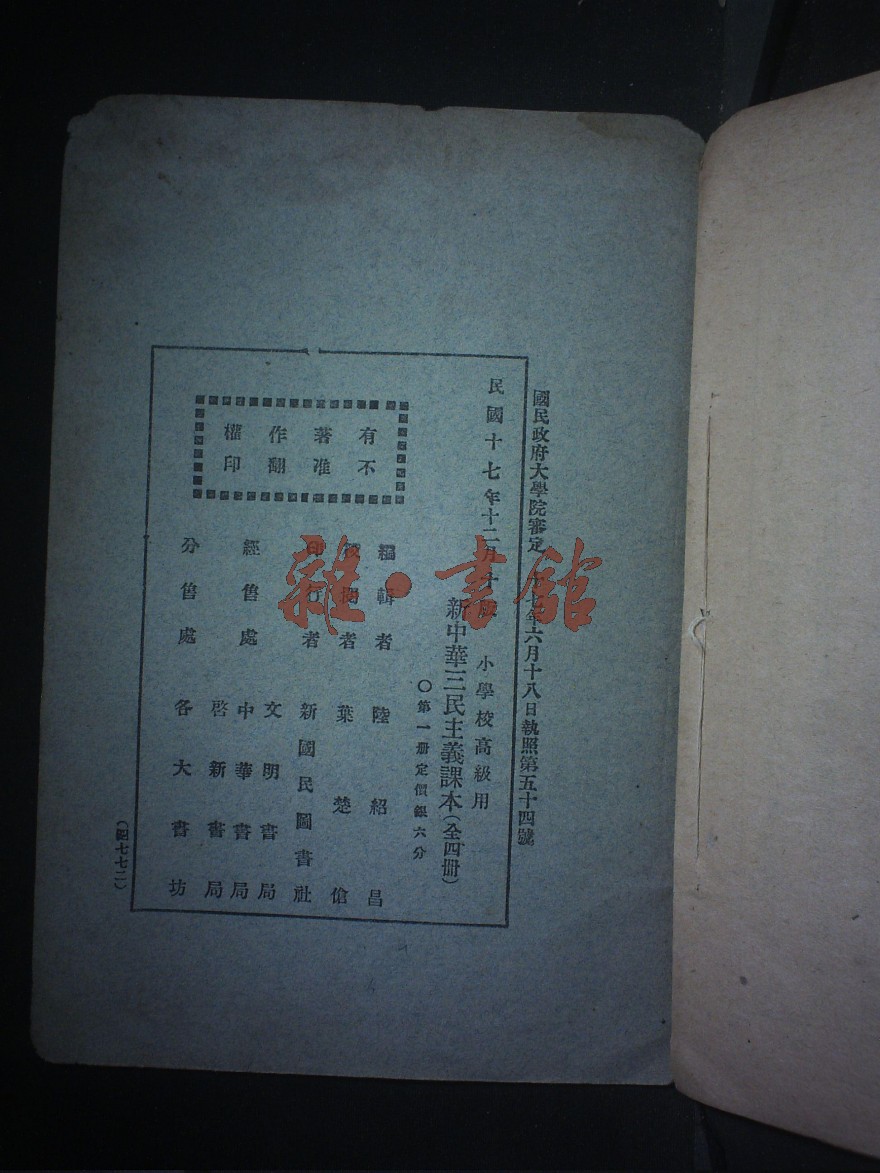 國民政府大學院審定 十七年六月十八日執照第五十四號
民國十七年十二月十版
小學校高級用
新中華三民主義課本(全四冊)
○第一冊定價銀六分
有著作權
不准翻印
編輯者 陸紹昌
校閱者 葉楚傖
印行者 新國民圖書社
經售處 文明書局
中華書局
啓新書局
分售處 各大書坊
雜·書館